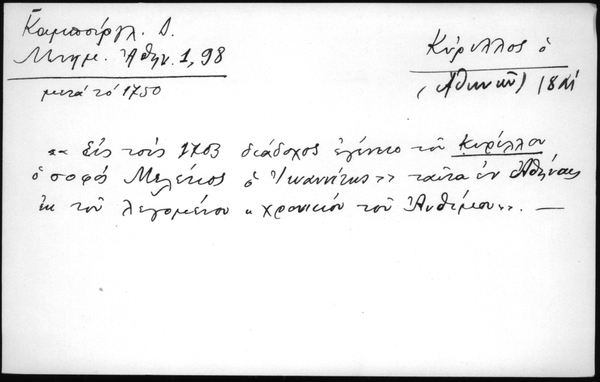 Καμπούργλ. Δ.
Μνημ. Αθην. 1, 98
μετά τό 1750
Κύριλλος ὁ
(Ἀθηνῶν)
«Εἰς τούς 1703 διάδοχος ἐγένετο τοῦ Κυρίλλου
ὁ σοφός Μελέτιος ὁ Ἰωαννίτης» ταῦτα ἐν Ἀθήναις
ἐκ τοῦ λεγομένου «χρονικοῦ τοῦ Ἀνθίμου». —